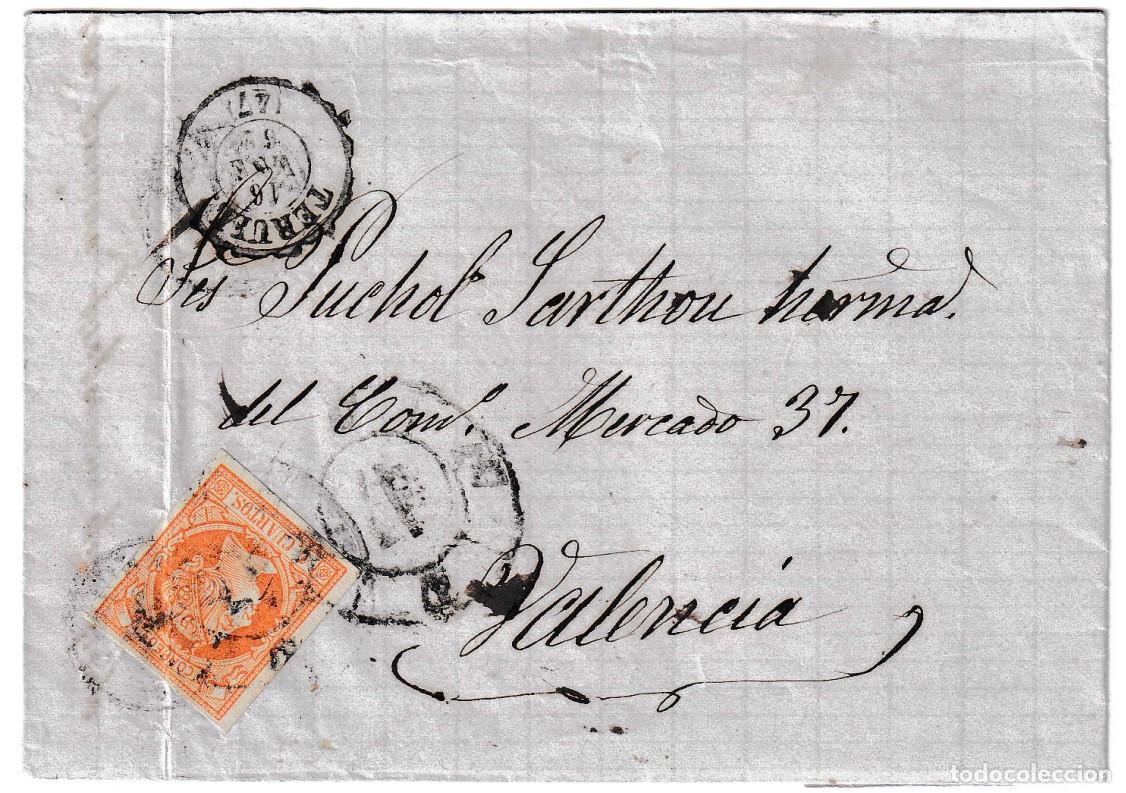 TERUEL
(47)
Sres Puchol Sarthou herma.s
del Com.o Mercado 37.
Valencia
CUARTOS
CORREOS
todocoleccion